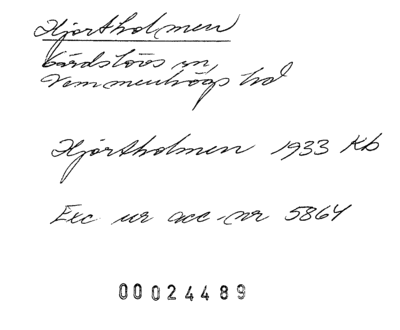 Hjortholmen
Gärdslövs sn,
Vemmenhögs hd
Hjortholmen 1933 Kb
Exc ur acc-nr 5864
00024489